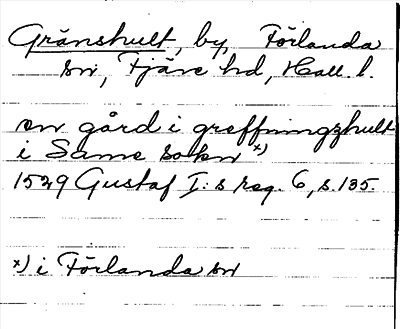 Gränshult, by, Förlanda
sn, Fjäre hd, Hall. l.
en gård i greffningzhult
i Same sokn x)
1529 Gustaf I:s reg. 6, s. 135.
x) i Förlanda sn